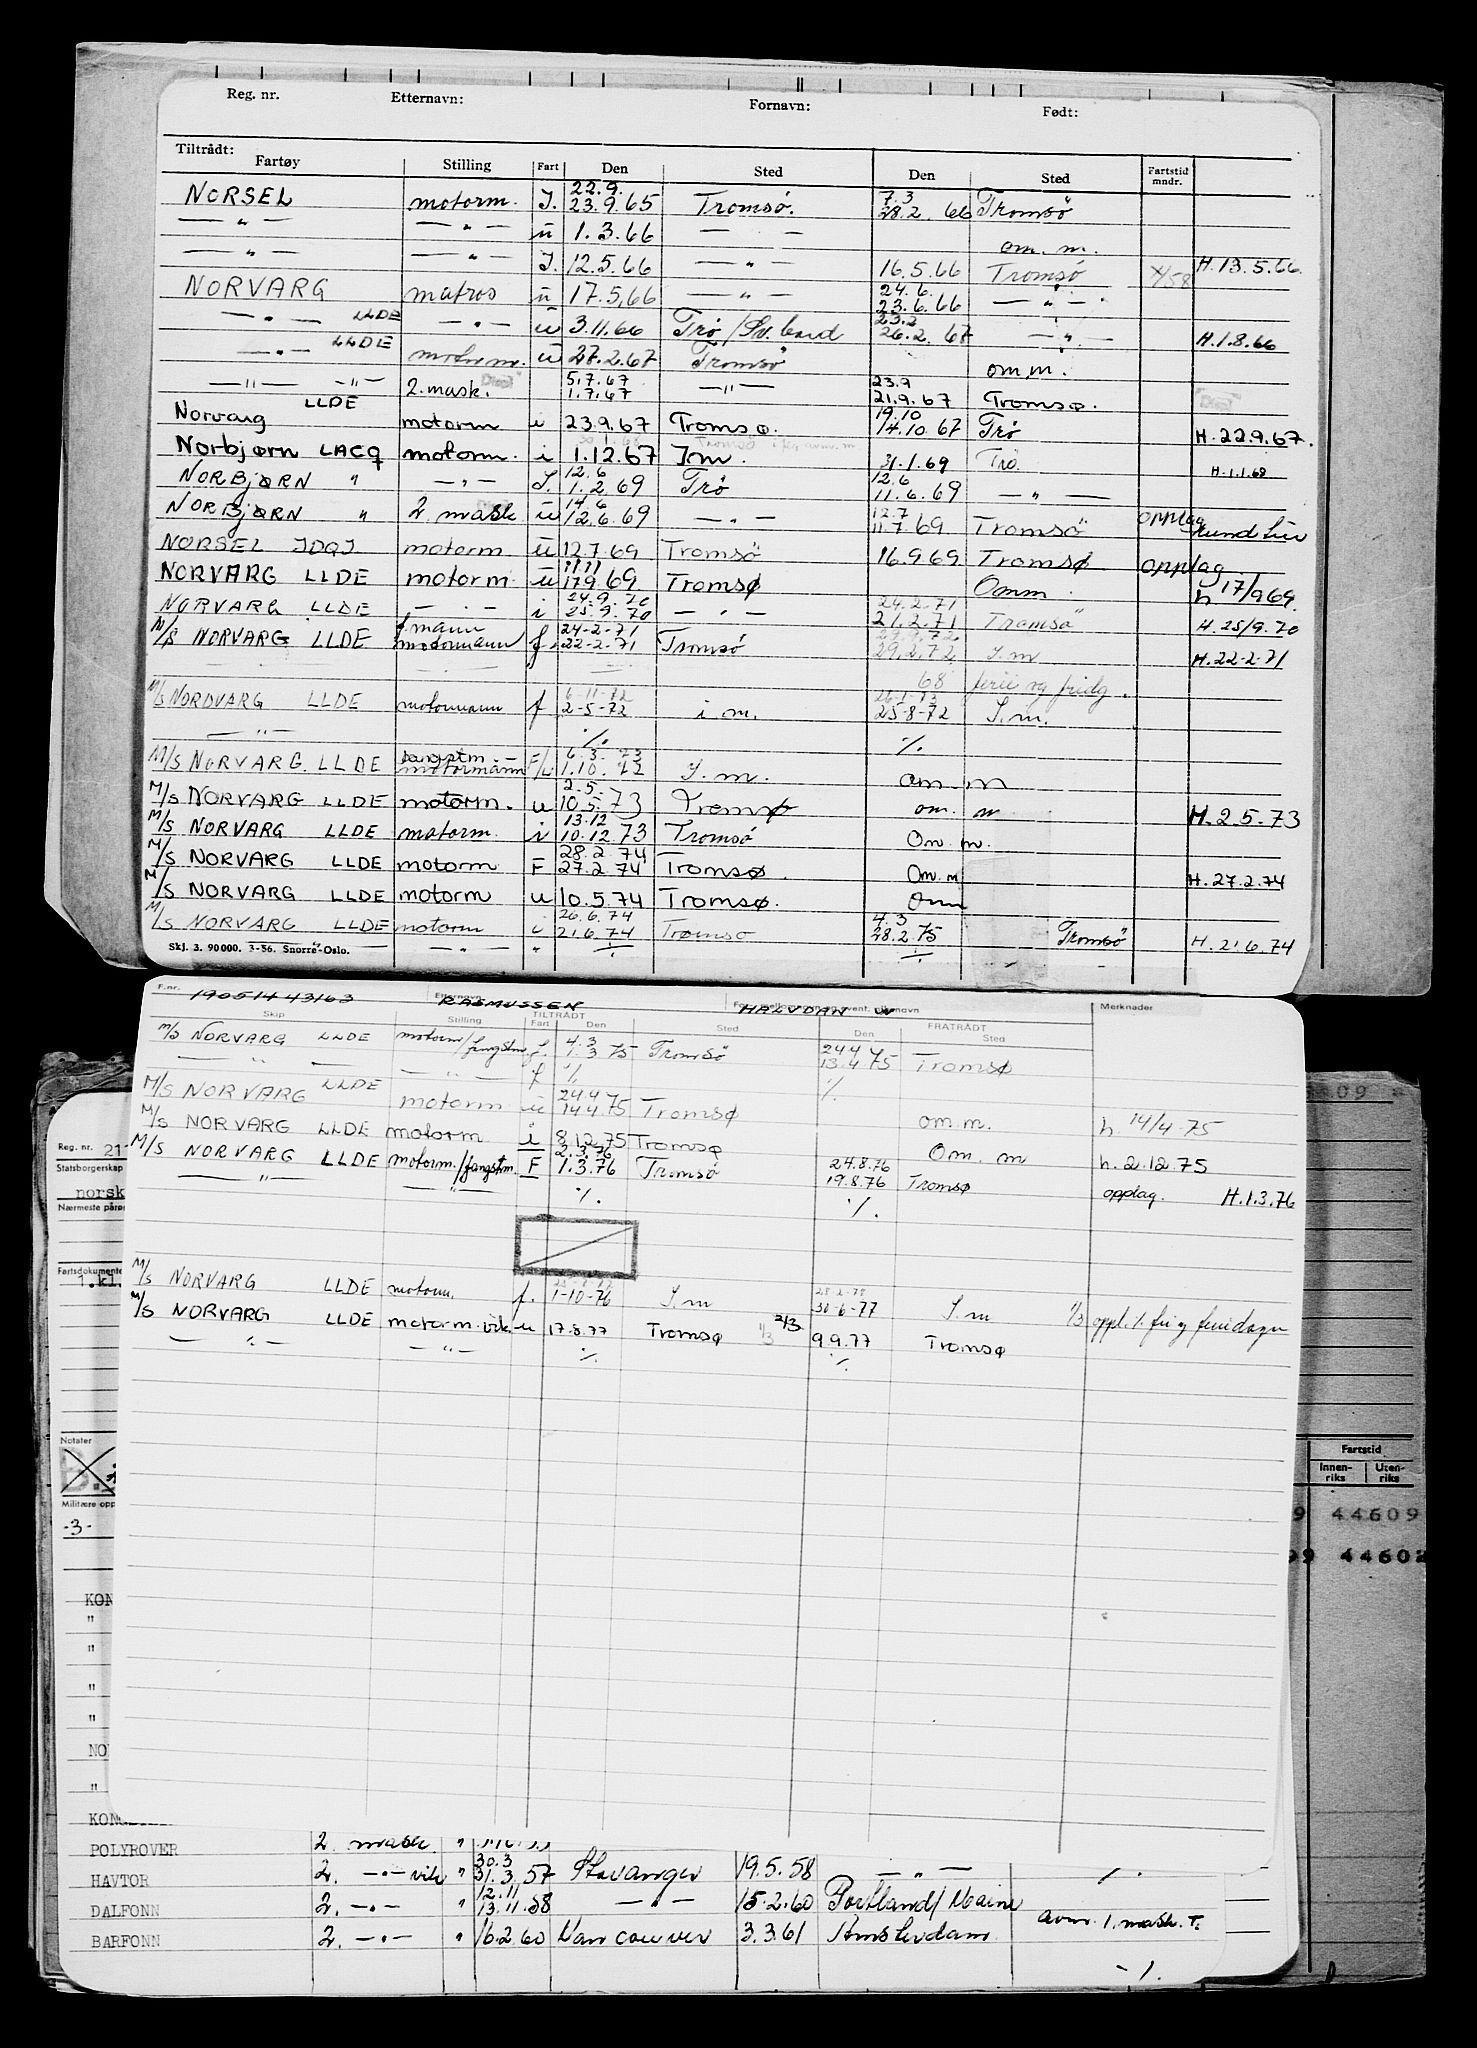 Reg. nr. Etternavn: Fornavn: Født:
Tiltrådt:
Fartøy Stilling Fart Den Sted Den Sted Fartstid mndr.
22.9. 7.3
NORSEL motorm. I. 23.9.65 Tromsö. 28.2.66 Tromsö
— " — — " — u 1.3.66 — — om. m.
— " — — " — I. 12.5.66 — " — 16.5.66 Tromsö H.13.5.66
24.6.
NORVARG matros u 17.5.66 — " — 23.6.66 — " —
23.2
— " — LLDE — " — u 3.11.66 Trö / Sv.bard 26.2.67 — " — H.1.8.66
— " — LLDE motorm. u 27.2.67 Tromsö om m.
5.7.67 23.9
— " — — " — 2. mask. 1.7.67 — " — 21.9.67 Tromsø.
19.10
Norvarg LLDE motorm i 23.9.67 Tromsø. 14.10.67 Trö H.22.9.67.
Norbjørn LACQ motorm. i 1.12.67 Im. 31.1.69 Trö. H.1.1.68
12.6 12.6
NORBJØRN " — " — I. 1.2.69 Trö 11.6.69 — " —
14.6 12.7
NORBJØRN " 2 mask u 12.6.69 — " — 11.7.69 Tromsö opplag
NORSEL JDQJ motorm u 12.7.69 Tromsö 16.9.69 Tromsø opplag
NORVARG LLDE motorm u 17.9.69 Tromsø Omm. h 17/9 69.
24.9.70 24.2.71
NORVARG LLDE — " — i 25.9.70 — " — 21.2.71 Tromsö H.25/9.70
f.mann 24-2-71
M/S NORVARG LLDE motormann f. 22-2-71 Tromsö 29.2.72 I.m H.22-2-71
68 ferie og fridg.
6-11-72 26-1-73
M/S NORDVARG LLDE motormann f 2-5-72 i m. 25-8-72 I.m.
— " — %. %.
fangstm. 6.3.73
M/S NORVARG. LLDE motormann F/u 1.10.72 I.m. om. m
2.5.
M/S NORVARG LLDE motorm. u 10.5.73 Tromsø om. m H.2.5.73
13.12
M/S NORVARG LLDE motorm. i 10.12.73 Tromsö Om. m.
28.2.74
M/S NORVARG LLDE motorm F 27.2.74 Tromsø. Om. m H.27.2.74
M/S NORVARG LLDE motorm u 10.5.74 Tromsø. Omm
26.6.74 4.3
M/S NORVARG LLDE motorm u 21.6.74 Tromsø 28.2.75 Tromsö H.21.6.74
Skj. 3. 90000. 3-56. Snorre-Oslo. — " — " %. %.
F.nr. 190514 43163 Etternavn RASMUSSEN For-, mellomnavn og event. pikenavn HALVDAN W Merknader
Skip Stilling TILTRÅDT Fart Den Sted Den FRATRÅDT Sted
4.3 24.4.75
M/S NORVARG LLDE motorm/fangstm. f. 1.3.75 Tromsö 13.4.75 Tromsø
— " — — " — f %. %.
24.4.75
M/S NORVARG LLDE motorm u 14.4.75 Tromsø om.m. h. 14/4-75
M/S NORVARG LLDE motorm i 8.12.75 Tromsø Om. m h. 2.12.75
2.3.76 24.8.76
M/S NORVARG LLDE motorm./fangstm. F 1.3.76 Tromsö 19.8.76 Tromsø opplag. H.1.3.76
— " — — " — %. %.
M/S NORVARG LLDE motorm. f. 1-10-76 I.m 30-6-77 I.m 1/3 oppl.
M/S NORVARG LLDE motorm. vik. u 17.8.77 Tromsø 1/3 2/3 9.9.77 Tromsø
— " — — " — %. %.
Reg. nr. 21
Statsborgerskap
norsk
Nærmeste påro
Fartsdokumente
1.kl.
Notater
Militære opp
-3-
Fartstid
Innen-riks Uten-riks
44609
44602
KON
"
"
"
"
NO
"
KON
POLYROVER 2 mask. "
30.3
HAVTOR 2. — " — vik " 31.3.57 Stavanger 19.5.58 — " —
12.11
DALFONN 2. — " — " 13.11.58 — " — 15.2.60 Portland/Maine
BARFONN 2. — " — " 16.2.60 Vancouver 3.3.61 Amsterdam avm. 1. mask. T.
-/.